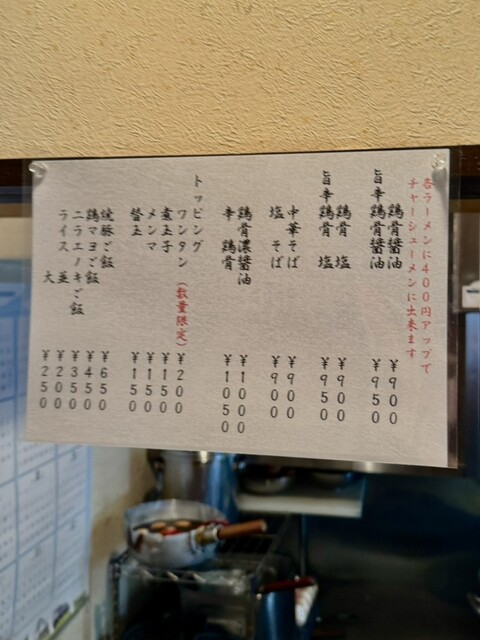 各ラーメンに400円アップで
チャーシューメンに出来ます
鶏骨醤油 ¥900
旨辛鶏骨醤油 ¥950
鶏骨 塩 ¥900
旨辛鶏骨 塩 ¥950
中華そば ¥900
塩そば ¥900
鶏骨濃醤油 ¥1000
辛 鶏骨 ¥1050
トッピング
ワンタン(数量限定) ¥200
煮玉子 ¥150
メンマ ¥150
替玉 ¥150
焼豚ご飯 ¥650
鶏マヨご飯 ¥450
ニラエノキご飯 ¥350
ライス 並 ¥200
大 ¥250